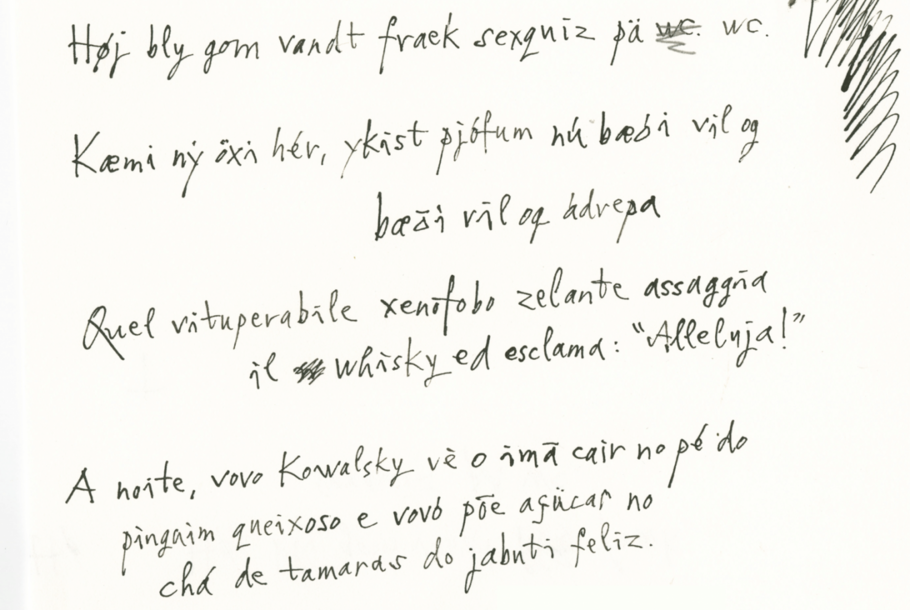 Høj bly gom vandt fraek sexquiz pä wc. wc.
Kæmi ný öxi hér, ykist þjófum nú bæði víl og
bæði víl og ádrepa
Quel vituperabile xenofobo zelante assaggia
il whisky ed esclama: "Alleluja!"
A noite, vovo Kowalsky vè o imã cair no pé do
pinguim queixoso e vovó põe açücar no
chá de tamaras do jabuti feliz.